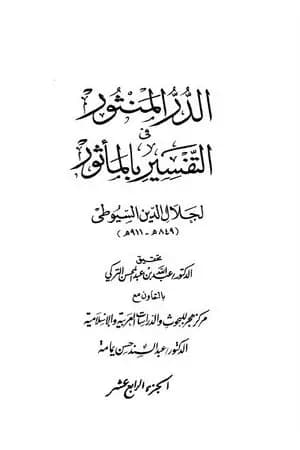 الدر المنثور
في
التفسير بالمأثور
لجلال الدين السيوطي
(٨٤٩ هـ - ٩١١ هـ)
تحقيق
الدكتور عبد الله بن عبد المحسن التركي
بالتعاون مع
مركز هجر للبحوث والدراسات العربية والإسلامية
الدكتور عبد السند حسن يمامة
الجزء الرابع عشر